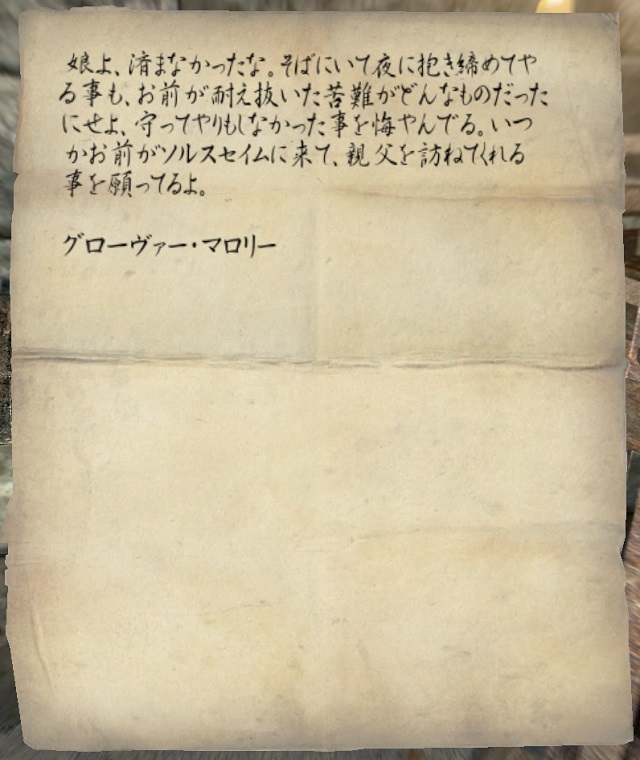 娘よ、済まなかったな。そばにいて夜に抱き締めてや
る事も、お前が耐え抜いた苦難がどんなものだった
にせよ、守ってやりもしなかった事を悔やんでる。いつ
かお前がソルスセイムに来て、親父を訪ねてくれる
事を願ってるよ。
グローヴァー・マロリー